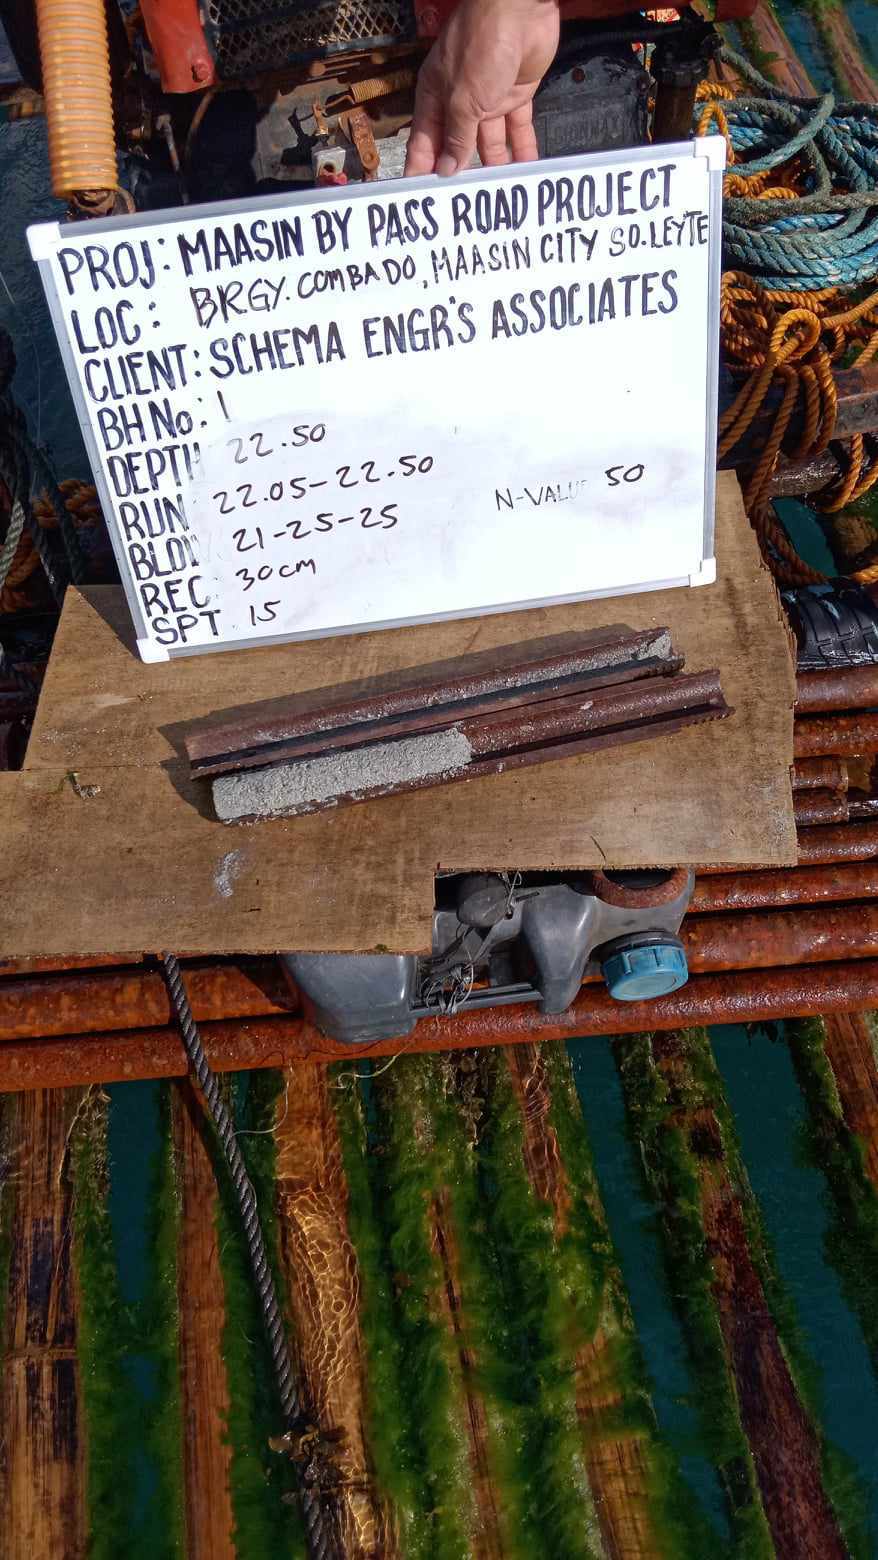 PROJ: MAASIN BY PASS ROAD PROJECT
LOC: BRGY. COMBADO, MAASIN CITY SO. LEYTE
CLIENT: SCHEMA ENGR'S ASSOCIATES
BH No: 1
DEPTH 22.50
RUN 22.05-22.50
BLOW 21-25-25 N-VALUE 50
REC 30cm
SPT 15